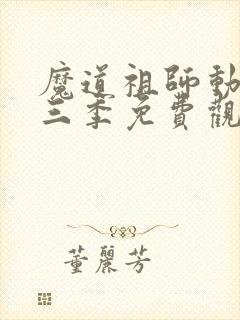 魔道祖師動
三季免費觀
董麗芳